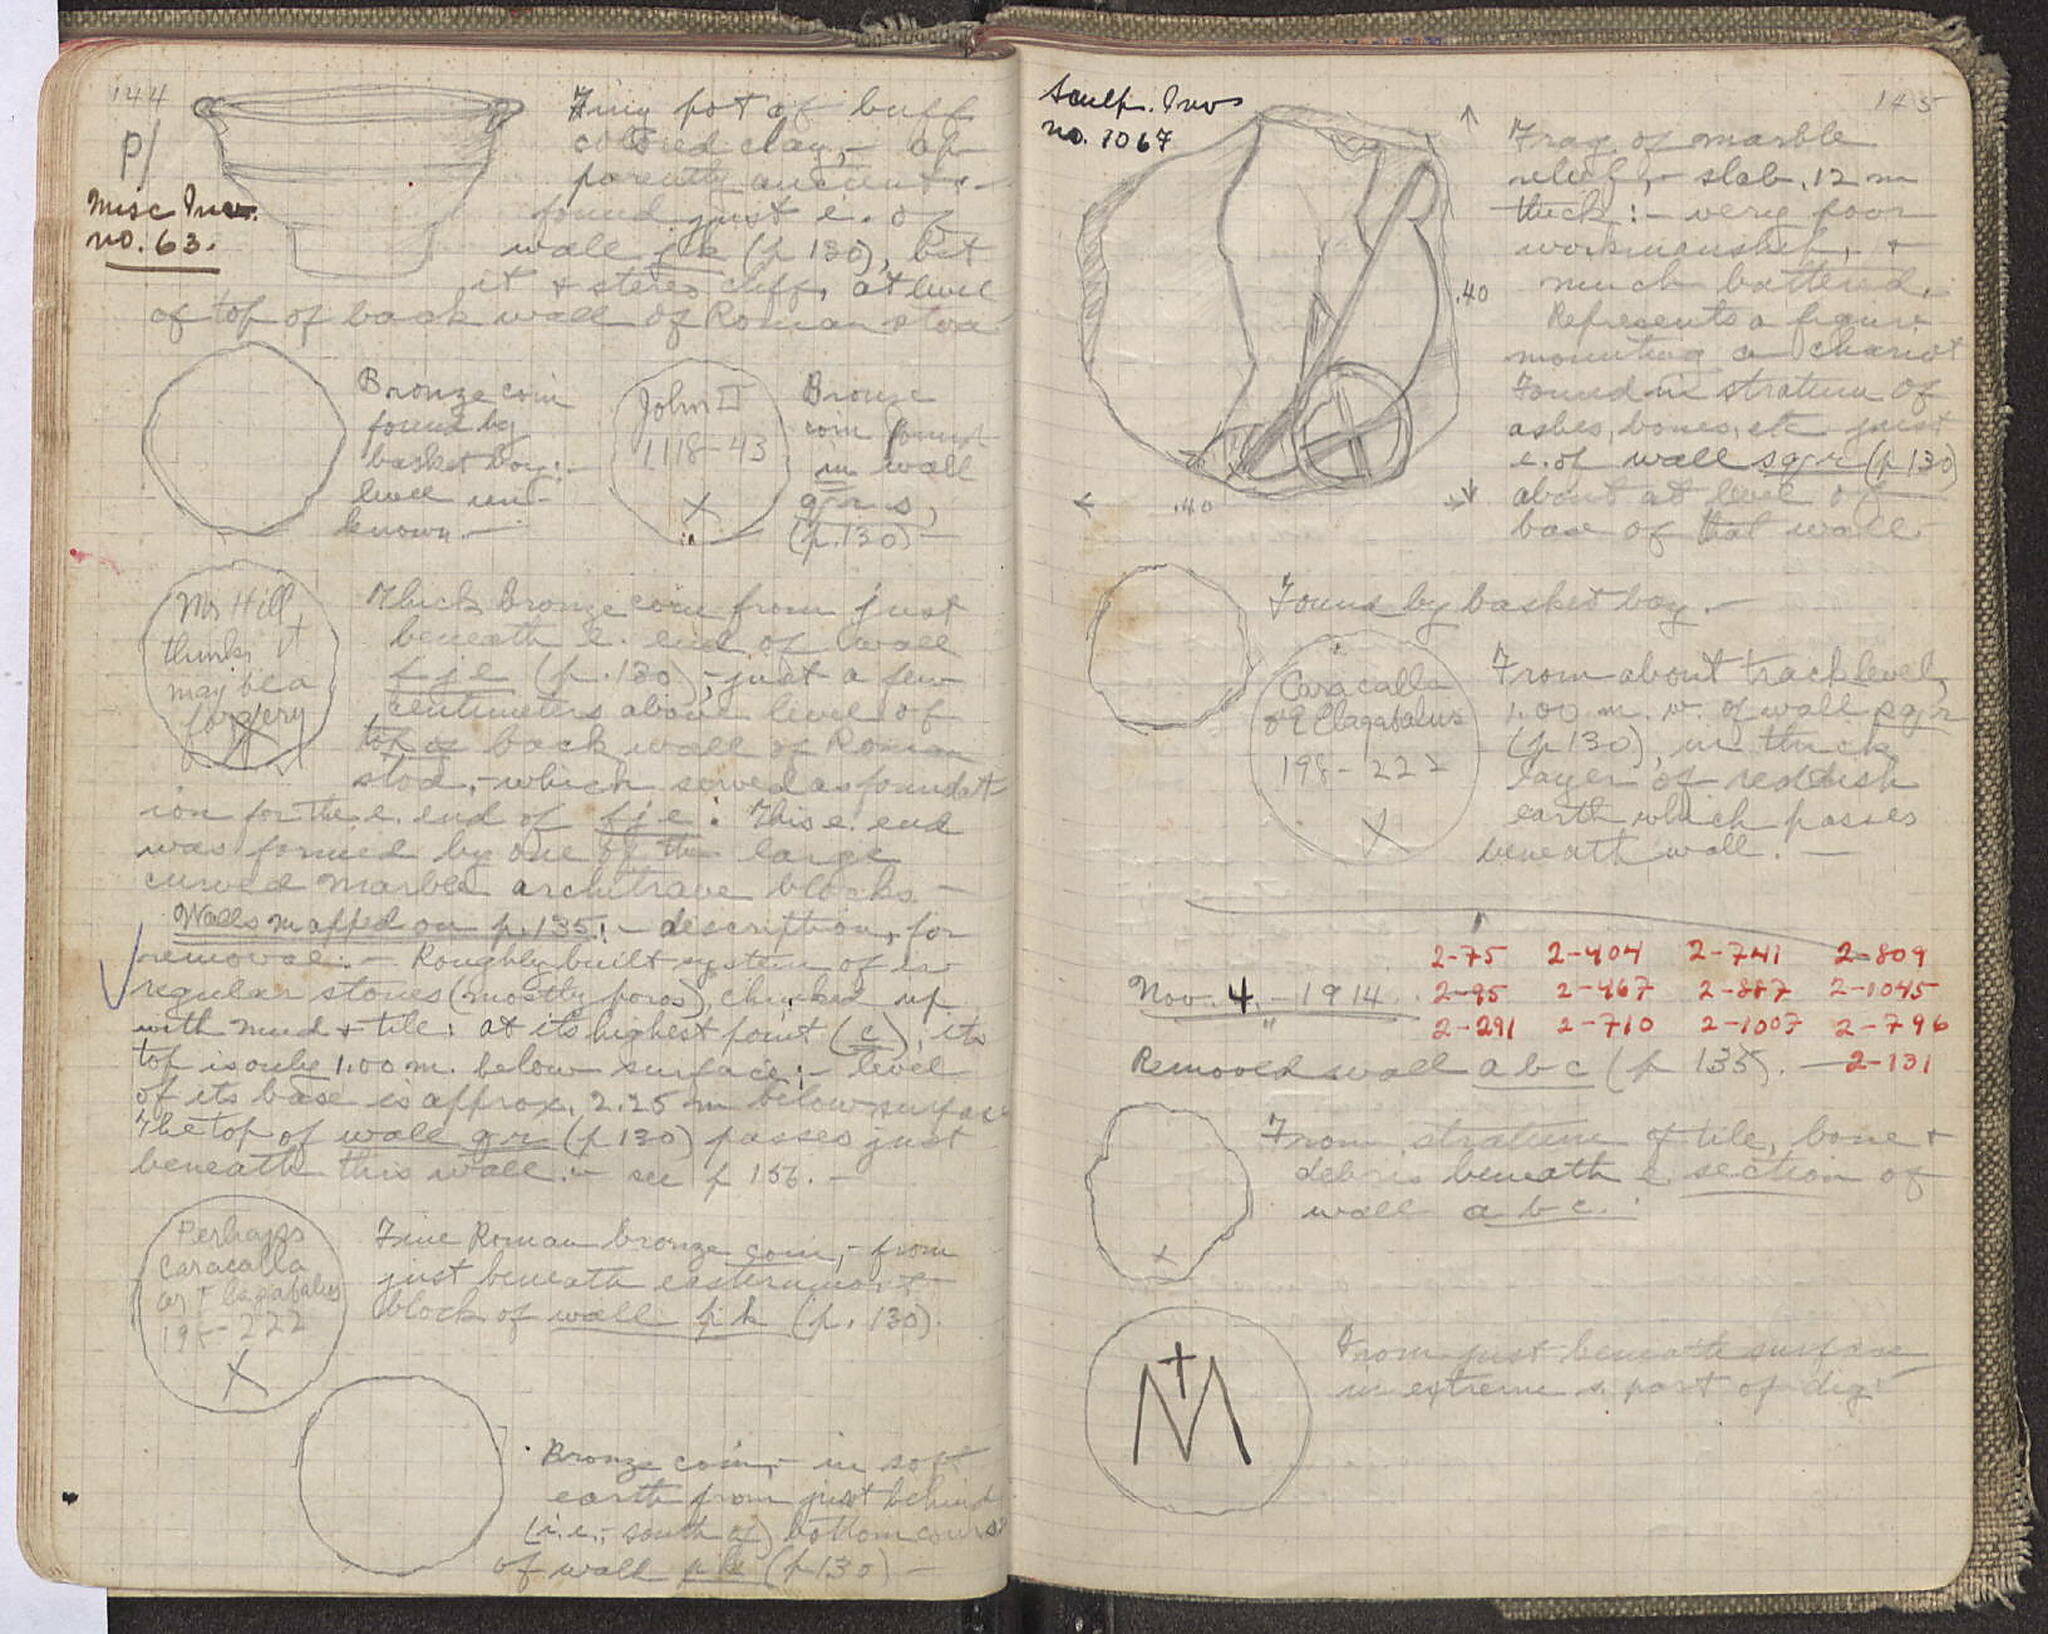 144
P/
Misc Inv.
no. 63.
Tiny pot of buff
colored clay, - ap-
parently ancient: -
found just e. of
wall jk (p 130), bet
it & stereo cliff, at level
of top of back wall of Roman stoa
Bronze coin
found by
basket boy: -
level un-
known. -
John II
1118-43
X
Bronze
coin found
in wall
q r s,
(p. 130) -
Mr Hill
thinks it
may be a
forgery
X
Thick bronze coin from just
beneath e. end of wall
f j e (p. 130), - just a few
centimeters above level of
top of back wall of Roman
stoa, - which served as foundat-
ion for the e. end of f j e : This e. end
was formed by one of the large
curved marble architrave blocks -
Walls mapped on p. 135: - description, for
removal: - Roughly built system of ir-
regular stones (mostly poros), chinked up
with mud & tile: at its highest point (c), its
top is only 1.00 m. below surface; - level
of its base is approx. 2.25 m below surface
The top of wall q r (p 130) passes just
beneath this wall: - see p 156. -
Perhaps
Caracalla
or Elagabalus
198-222
X
Fine Roman bronze coin, - from
just beneath easternmost
block of wall jk (p. 130).
Bronze coin, - in soft
earth from just behind
(i.e., - south of) bottom course
of wall jk (p 130) -
145
Sculp. Inv
no. 1067
.40
.40
Frag. of marble
relief, - slab .12 m
thick: - very poor
workmanship, &
much battered.
Represents a figure
mounting a chariot
Found in stratum of
ashes, bones, etc just
e. of wall s q r (p 130)
about at level of
base of that wall.
Found by basket boy. -
Caracalla
or Elagabalus
198-222
X
From about track level,
1.00 m. w. of wall s q r
(p 130), in thick
layer of reddish
earth which passes
beneath wall. -
2-75 2-404 2-741 2-809
Nov. 4. - 1914. 2-95 2-467 2-887 2-1045
2-291 2-710 2-1007 2-796
Removed wall a b c (p 135). - 2-131
X
From stratum of tile, bone &
debris beneath e section of
wall a b c.
M
From just beneath surface
in extreme s. part of dig